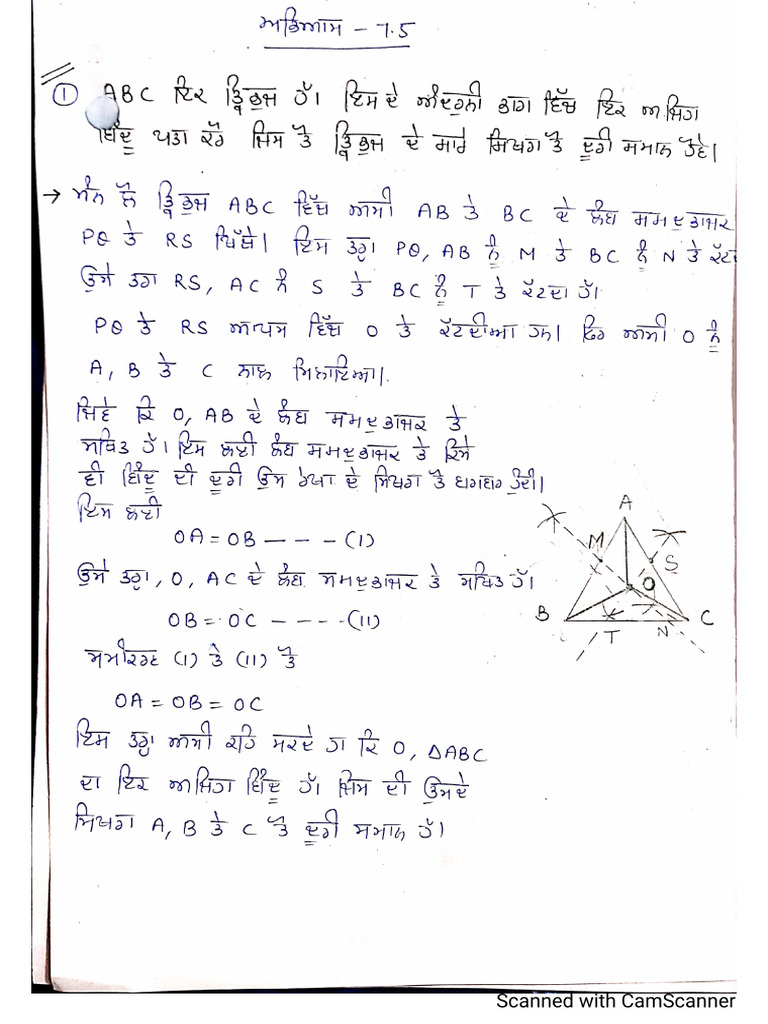 ਅਭਿਆਸ - 7.5
① ABC ਇਕ ਤ੍ਰਿਭੁਜ ਹੈ। ਇਸ ਦੇ ਅੰਦਰੂਨੀ ਭਾਗ ਵਿੱਚ ਇਕ ਅਜਿਹਾ
ਬਿੰਦੂ ਪਤਾ ਕਰੋ ਜਿਸ ਤੋਂ ਤ੍ਰਿਭੁਜ ਦੇ ਸਾਰੇ ਸਿਖਰਾਂ ਤੋਂ ਦੂਰੀ ਸਮਾਨ ਹੋਵੇ।
→ ਮੰਨ ਲੋ ਤ੍ਰਿਭੁਜ ABC ਵਿੱਚ ਅਸੀਂ AB ਤੇ BC ਦੇ ਲੰਬ ਸਮਦੁਭਾਜਕ
PQ ਤੇ RS ਖਿੱਚੇ। ਇਸ ਤਰ੍ਹਾਂ PQ, AB ਨੂੰ M ਤੇ BC ਨੂੰ N ਤੇ ਕੱਟਦਾ
ਉਸੇ ਤਰਾਂ RS, AC ਨੂੰ S ਤੇ BC ਨੂੰ T ਤੇ ਕੱਟਦਾ ਹੈ।
PQ ਤੇ RS ਆਪਸ ਵਿੱਚ O ਤੇ ਕੱਟਦੀਆਂ ਹਨ। ਫਿਰ ਅਸੀਂ O ਨੂੰ
A, B ਤੇ C ਨਾਲ ਮਿਲਾਇਆ।
ਜਿਵੇਂ ਕਿ O, AB ਦੇ ਲੰਬ ਸਮਦੁਭਾਜਕ ਤੇ
ਸਥਿਤ ਹੈ। ਇਸ ਲਈ ਲੰਬ ਸਮਦੁਭਾਜਕ ਤੇ ਕਿਸੇ
ਵੀ ਬਿੰਦੂ ਦੀ ਦੂਰੀ ਉਸ ਰੇਖਾ ਦੇ ਸਿਖਰਾਂ ਤੋਂ ਬਰਾਬਰ ਹੁੰਦੀ।
ਇਸ ਲਈ
OA = OB - - - (I)
ਉਸੇ ਤਰ੍ਹਾਂ, O, AC ਦੇ ਲੰਬ ਸਮਦੁਭਾਜਕ ਤੇ ਸਥਿਤ ਹੈ।
OB = OC - - - - (II)
ਸਮੀਕਰਣ (I) ਤੇ (II) ਤੋਂ
OA = OB = OC
ਇਸ ਤਰ੍ਹਾਂ ਅਸੀਂ ਕਹਿ ਸਕਦੇ ਹਾਂ ਕਿ O, ΔABC
ਦਾ ਇਕ ਅਜਿਹਾ ਬਿੰਦੂ ਹੈ। ਜਿਸ ਦੀ ਉਸਦੇ
ਸਿਖਰਾਂ A, B ਤੇ C ਤੋਂ ਦੂਰੀ ਸਮਾਨ ਹੈ।
A
M
S
O
B
T
N
C
Scanned with CamScanner